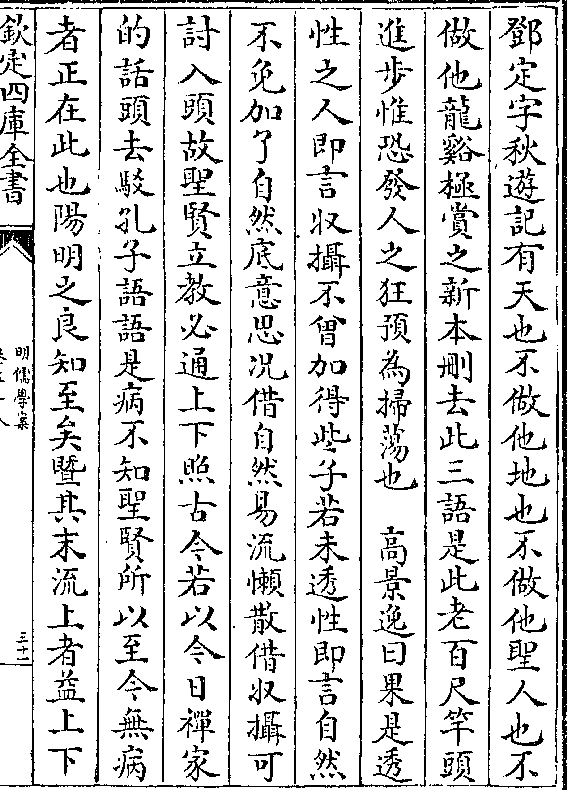 鄧定宇秋遊記有天也不做他地也不做他聖人也不
做他龍谿極賞之新本刪去此三語是此老百尺竿頭
進步惟恐發人之狂預為掃蕩也　高景逸曰果是透
性之人即言收攝不曾加得些子若未透性即言自然
不免加了自然底意思况借自然易流懶散借收攝可
討入頭故聖賢立教必通上下照古今若以今日禪家
的話頭去駁孔子語語是病不知聖賢所以至今無病
者正在此也陽明之良知至矣暨其末流上者益上下
欽定四庫全書
明儒學案
三十一